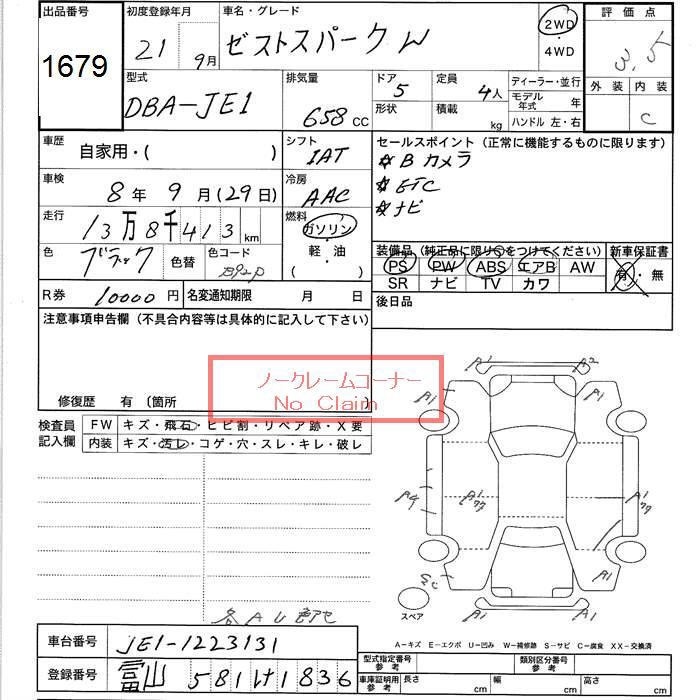 出品番号
1679
初度登録年月
21 9月
車名・グレード
ゼストスパークW
2WD
・
4WD
評価点
3.5
外装 内装
C
型式
DBA-JE1
排気量
658 CC
ドア
5
形状
定員
4人
積載
kg
ディーラー・並行
モデル年式 年
ハンドル 左・右
車歴
自家用・( )
シフト
IAT
車検
8年 9月(29日)
冷房
AAC
走行
13万8千413 km
燃料
ガソリン
・
軽・油
( )
色
ブラック
色替
色コード
B92P
R券
10000円
名変通知期限 月 日
セールスポイント (正常に機能するものに限ります)
☆Bカメラ
☆ETC
☆ナビ
装備品 (純正品に限り○をつけてください)
PS PW ABS エアB AW
SR ナビ TV カワ
新車保証書
有・無
後日品
注意事項申告欄 (不具合内容等は具体的に記入して下さい)
ノークレームコーナー
No Claim
修復歴 有 (箇所
検査員
記入欄
FW キズ・飛石・ヒビ割・リペア跡・X要
内装 キズ・汚レ・コゲ・穴・スレ・キレ・破レ
A1 A2
A1 A1
A4 A1 A1
A1 A1
スペア
各AU
A−キズ E−エクボ U−凹み W−補修跡 S−サビ C−腐食 XX−交換済
車台番号
JE1-1223131
登録番号
富山 581 け 1836
型式指定番号
参考
類別区分番号
参考
車庫証明用
参考
長さ cm
幅 cm
高さ cm